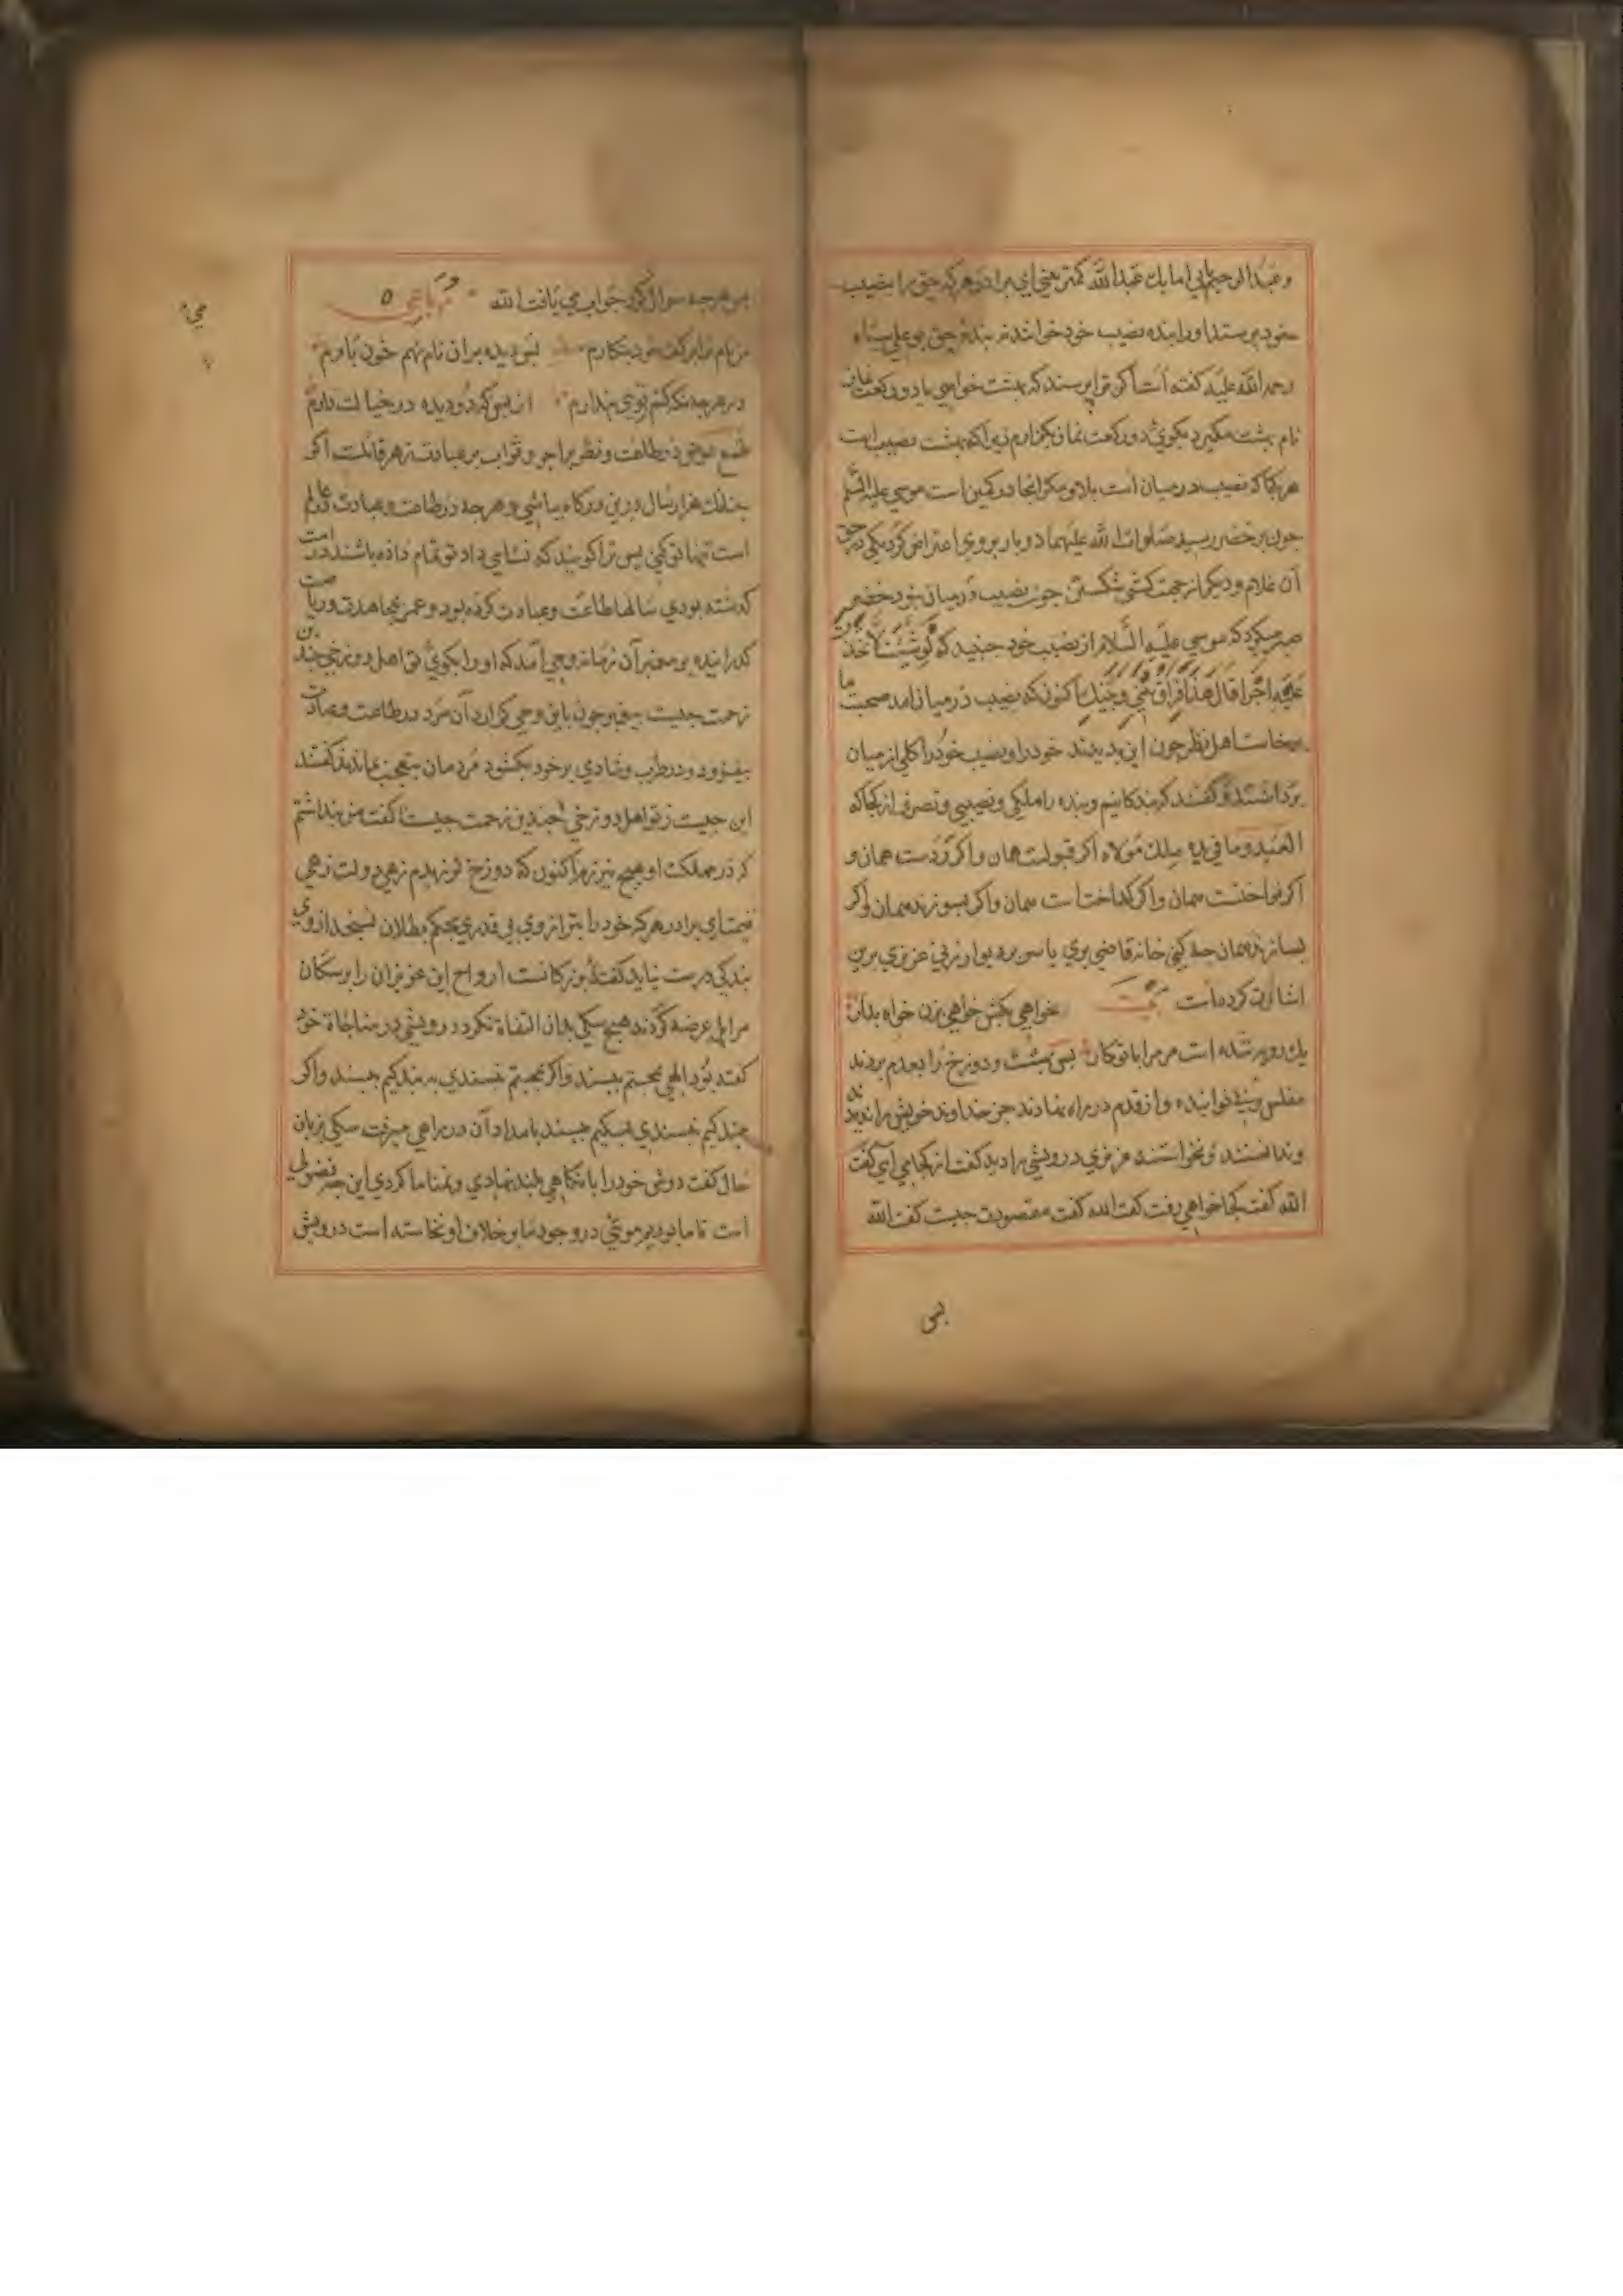 و عبدالرحیم یابی اما یک عبدالله کمتر بینی ای برادر هر که حق را بنصیب
خود پرستد او را بنده نصیب خود خوانند نه بنده حق بوعلی سیاه
رحمه الله علیه کفته است اکر ترا پرسند که بهشت خواهی یا دو رکعت نماز
نام بهشت مکیر و بکوی دو رکعت نماز بکزارم زیرا که بهشت نصیب است
هر کجا که نصیب در میان است بلا و مکر آنجا در کمین است موسی علیه السلم
چون بر خضر رسید صلوات الله علیهما دو بار بر وی اعتراض کرد یکی در حق
آن غلام و دیکر از جهت کشتی شکستن چون نصیب در میان نبود خضر
صبر میکرد که موسی علیه السلام از نصیب خود جنبید که لو شئت لاتخذت
علیه اجرا قال هذا فراق بینی و بینک اکنون که نصیب در میان آمد صحبت ما
برخاست اهل نظر چون این بدیدند خود را و نصیب خود را کلی از میان
برداشتند و کفتند که بندکانیم و بنده را ملکی و نصیبی و تصرف از کجا که
العبد وما فی یده ملک مولاه اکر قبولست همان و اکر ردست همان و
اکر نواختست همان و اکر کداختست همان و اکر بسوزند همان و اکر
بسازند همان چه کنی خانه قاضی بری یا سر بر دیوار زنی عزیزی برین
اشارت کرده است بیت خواهی بکش خواهی بزن خواه بدار
یک رویه شده است مر مرا با تو کار پس بهشت و دوزخ را بعدم بردند
مفلس و بینوا بنده وار قدم در راه نهادند جز خداوند خویش را ندیدند
و ندانستند و نخواستند عزیزی درویشی را دید کفت از کجا می آیی کفت
الله کفت کجا خواهی رفت کفت الله کفت مقصودت چیست کفت الله
بس
پس هر چه سوال کرد جواب می یافت الله رباعی
من نام ترا بر کف خود بنکارم پس دیده بران نام نهم خون بارم
در هر چه نکه کنم توی پندارم از بس که دو دیده در خیالت دارم
طمع عوض در طاعت و نظر بر اجر و ثواب بر عبادت زهر قاتلست اکر
چندانک هزار سال درین درکاه بباشی و هر چه در طاعت و عبادت عالم
است تنها تو کنی پس ترا کویند که نشایی داد تو تمام داده باشند در امت
کذشته بودی سالها طاعت و عبادت کرده بود و عمر بمجاهدت و ریاضت
کذرانیده بر پیغمبر آن زمانه وحی آمد که او را بکوی تو اهل دوزخی چندین
زحمت چیست پیغمبر چون باین وحی کزارد آن مرد در طاعت و عبادت
بیفزود و در طرب و شادی بر خود بکشود مردمان متعجب ماندند کفتند
این چیست تو اهل دوزخی چندین زحمت چیست کفت من پنداشتم
که در مملکت او هیچ نیرزم اکنون که دوزخ را نیرزیدم زهی دولت زهی
قیمت ای برادر هر که خود را بترازوی بی قدری بحکم بطلان نسنجد از وی
بندکی درست نیاید کفته بزرکانست ارواح این عزیزان را بر سکان
مزابل عرضه کردند هیچ سکی بدان التفات نکرد درویشی در مناجات خود
کفته بود الهی بمحبتم بپسند و اکر بمحبتم نپسندی ببندکیم بپسند و اکر
ببندکیم نپسندی بسکیم بپسند بامداد آن در راهی میرفت سکی بزبان
حال کفت دوش خود را بانکاهی بلند نهادی و تمنا ما کردی این چه فضولی
است تا ما بودیم مویی در وجود ما بر خلاف او نخاسته است درویش